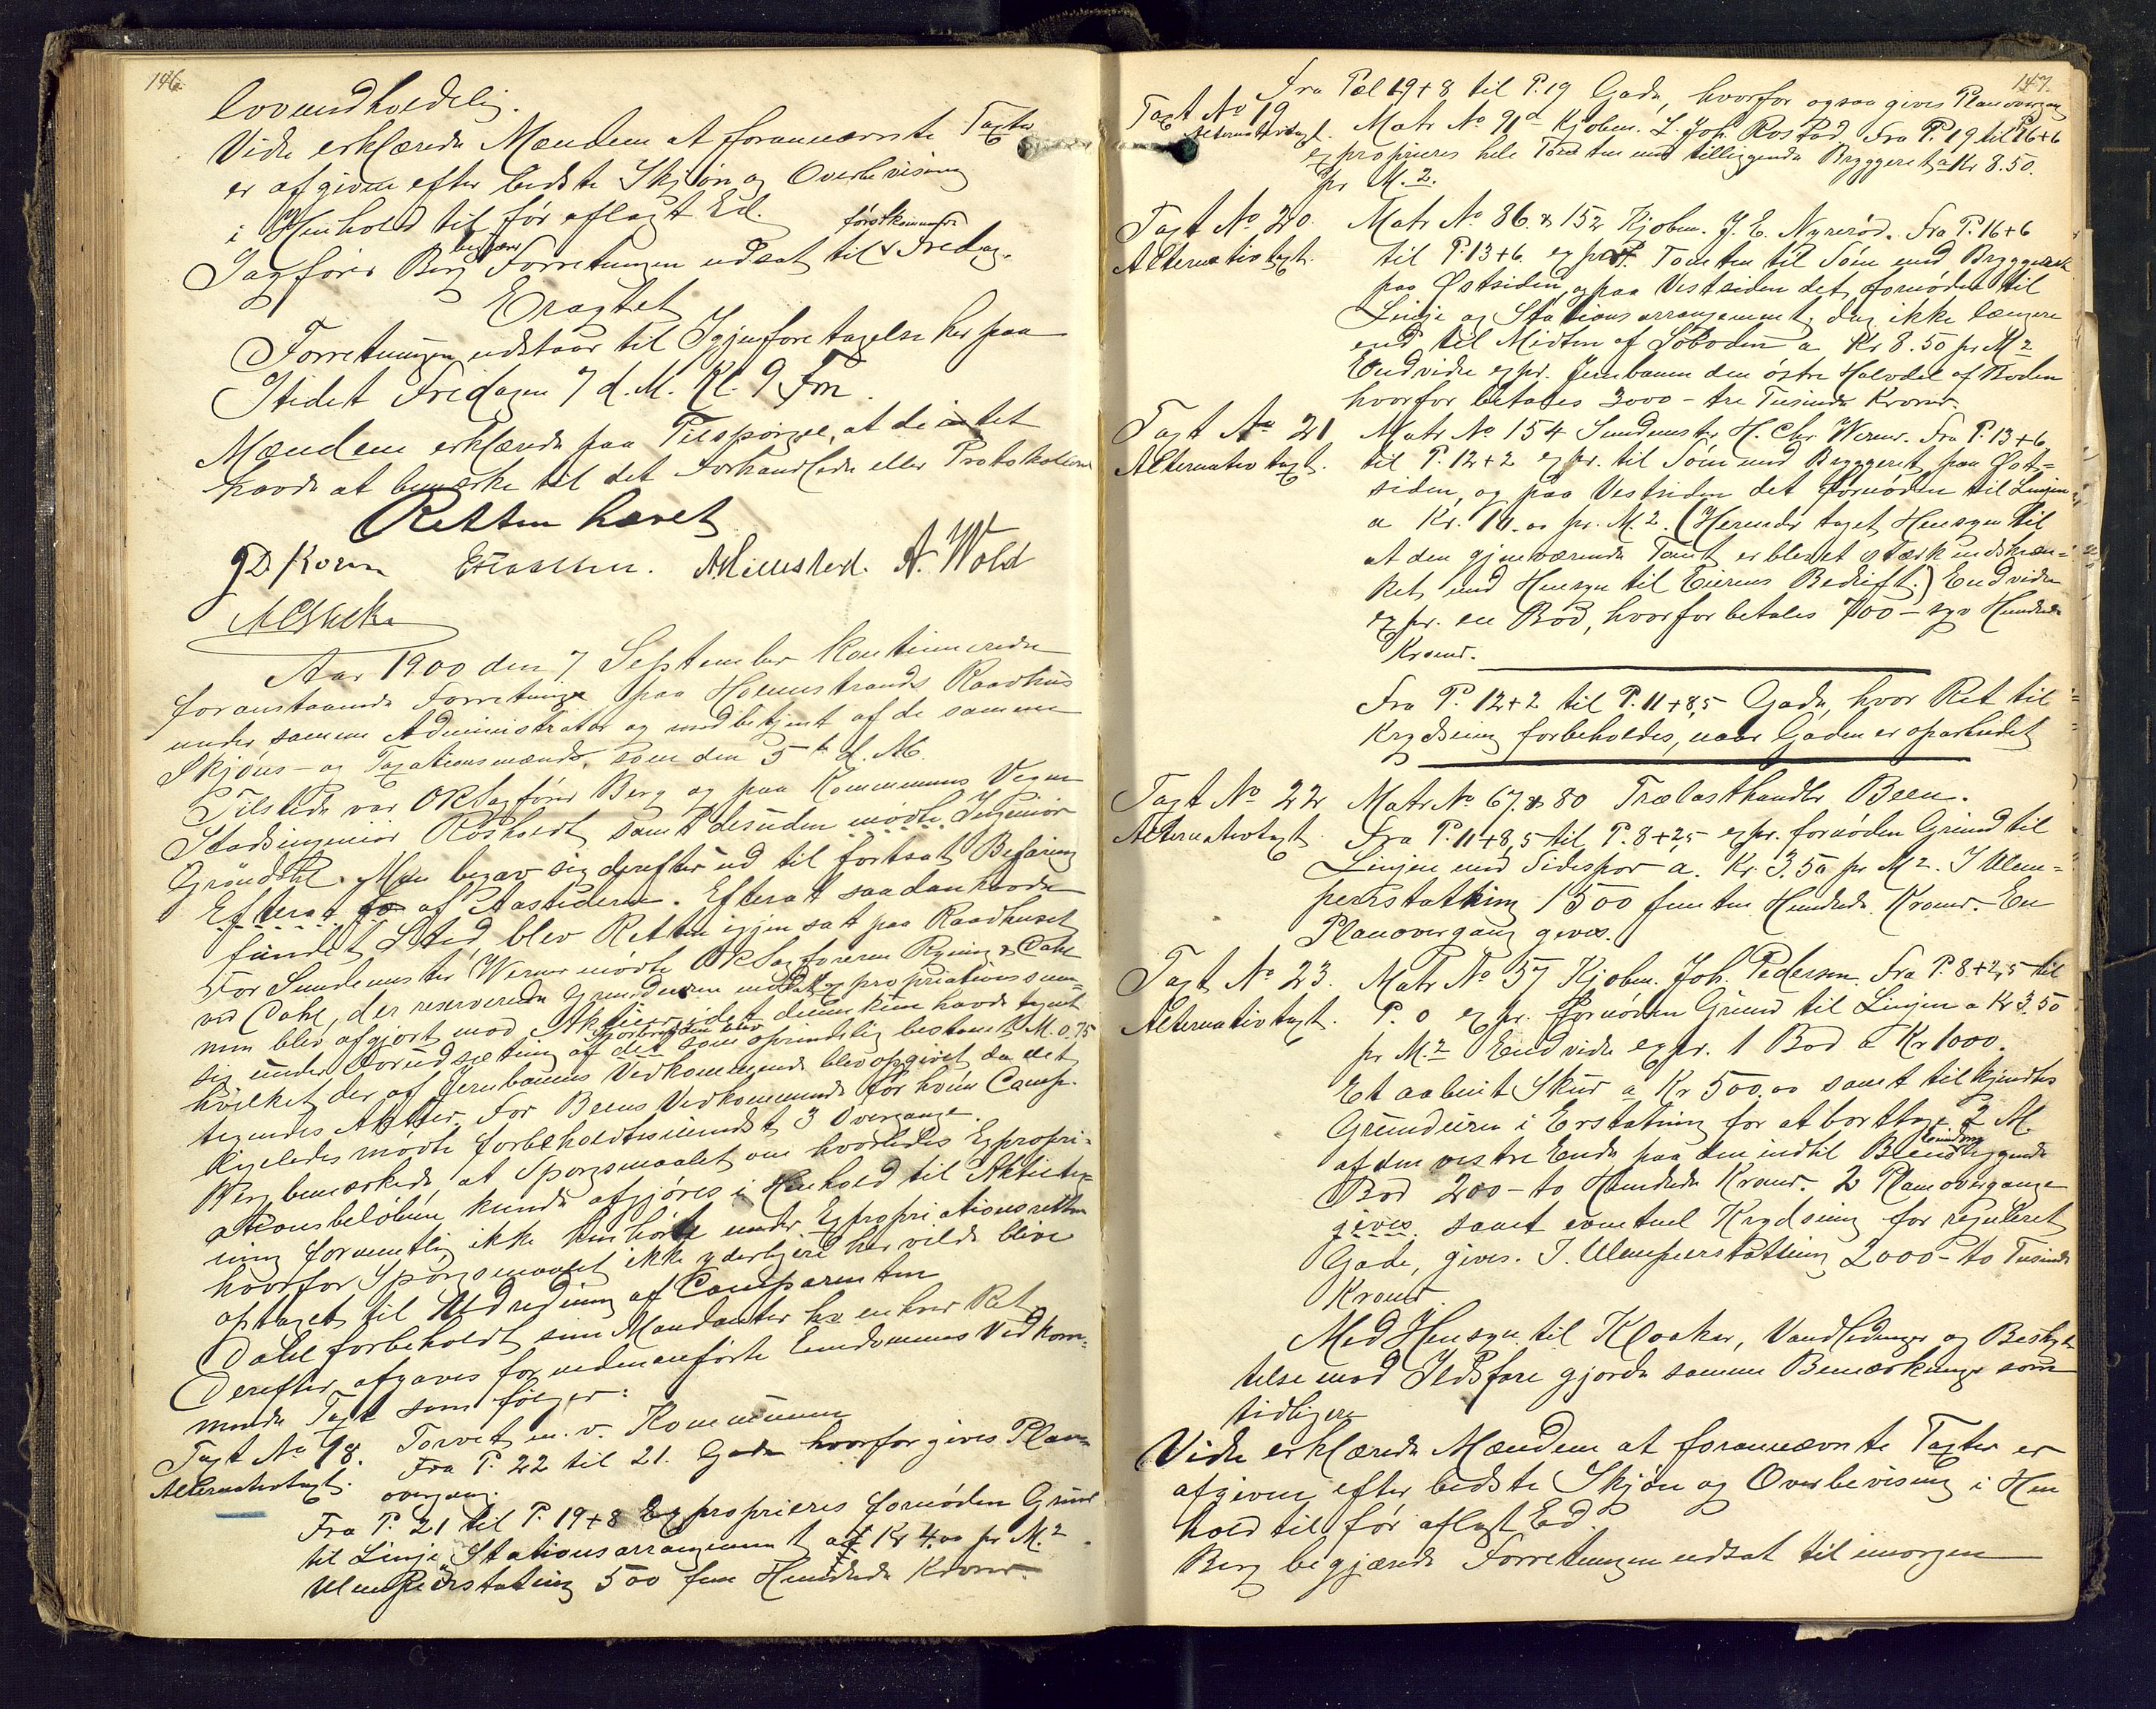 146.
lovmedholdelig.
Vidre erklærede Mændene at forannævnte Taxter
er afgivne efter bedste Skjøn og Overbevisning
i Henhold til før aflagt Ed.
Sagfører Berg begjærer Forretningen udsat til førstkommende Fredag.
Eragtet
Forretningen udstaar til Igjenforetagelse her paa
Stedet Fredagen 7 d. M. Kl. 9 Fm.
Mændene erklærede paa Tilspørgsel, at de intet
havde at bemærke til det Forhandlede eller Protokollerede
Retten hævet
A. Wold
Aar 1900 den 7 September kontinueredes
foranstaaende Forretning paa Holmestrands Raadhus
under samme Administrator og medbetjent af de samme
Skjøns- og Taxationsmænd, som den 5te d. M.
Tilstede var ORSagfører Berg og paa Kommunens Vegne
Stadsingeniør Rosholdt samt desuden mødte Ingeniør
Grøndahl. Man begav sig derefter ud til fortsat Befaring
Efterat fo af Aastederne. Efterat saadan havde
fundet Sted, blev Retten igjen sat paa Raadhuset
For Sundemester Werner mødte ORSagførerne Ryning & Dahl
ved Dahl, der reserverede Grundeieren mod at Expropriationssum-
men blev afgjort mod Aktier, idet denne kun havde tegnet
sig under Forudsætning af at Sporbredden blev som oprindelig bestemt M. 0.75
hvilket der af Jernbanens Vedkommende blev opgivet da det
tegnedes Aktier. For Beens Vedkommende for hvem Comp.
ligeledes mødte forbeholdtes mindst 3 Overgange.
Berg bemærkede, at Spørgsmaalet om hvorledes Expropri-
ationsbeløbene kunde afgjøres i Henhold til Aktieteg-
ning formentlig ikke henhørte under Expropriationsretten
hvorfor Spørgsmaalet ikke yderligere her vilde blive
optaget til Udredning af Comparenten
Dahl forbeholdt sine Mandanter enhver Ret
Derefter afgaves for nedenanførte Eiendommes Vedkom-
mende Taxt som følger:
Taxt No 18. Torvet m. v. Kommunen
Alternativtaxt. Fra P. 22 til 21. Gade hvorfor gives Plan-
overgang.
Fra P. 21 til P. 19+8 Exproprieres fornøden Grund
til Linje, Stationsarrangement af Kr 4.00 pr M.2
Ulempeerstatning 500 fem Hundrede Kroner.
147.
Fra Pæl 19+8 til P. 19 Gade, hvorfor ogsaa gives Planovergang
Taxt No 19
Alternativtaxt. Matr No 91d Kjøbm. L. Joh. Rostad. Fra P. 19 til P. 16+6
exproprieres hele Tomten med tilliggende Bryggeret a Kr 8.50.
pr M.2.
Taxt No 20. Matr No 86 & 152 Kjøbm. J. E. Nyrerød. Fra P. 16+6
Alternativtaxt. til P. 13+6 expr. Tomten til Søen med Bryggeret
paa Østsiden, og paa Vestsiden det fornødne til
Linje og Stationsarrangement, dog ikke længere
end til Midten af Søboden a Kr 8.50 pr M2
Endvidre expr. Jernbanen den østre Halvdel af Boden
hvorfor betales 3000 - tre Tusinde Kroner.
Taxt No 21 Matr No 154 Sundemester H. Chr. Werner. Fra P. 13+6
Alternativtaxt. til P. 12+2 expr. til Søen med Bryggeret paa Øst-
siden, og paa Vestsiden det fornødne til Linjen
a Kr. 10.00 pr. M. 2. (Herunder taget Hensyn til
at den gjenværende Tomt er blevet stærk indskræn-
ket, med Hensyn til Eierens Bedrift.) Endvidre
expr. en Bod, hvorfor betales 700 - syv Hundrede
Kroner.
Fra P. 12+2 til P. 11+8,5 Gade, hvor Ret til
Krydsning forbeholdes, naar Gaden er oparbeidet
Taxt No 22 Matr No 67. & 80 Trælasthandler Been.
Alternativtaxt. Fra P. 11+8,5 til P. 8+2,5 expr. fornøden Grund til
Linjen med Sidespor a. Kr. 3.50 pr M2. I Ulem-
peerstatning 1500 femten Hundrede Kroner. En
Planovergang gives.
Taxt No 23. Matr No 57 Kjøbm. Joh. Pedersen. Fra P. 8+2,5 til
Alternativtaxt. P. 0 expr. fornøden Grund til Linjen a Kr 3.50
pr M.2 Endvidre expr. 1 Bod a Kr 1000.
Et aabent Skur a Kr 500.00 samt tilkjendtes
Grundeieren i Erstatning for at borttage 2 M.
af den vestre Ende paa den indtil Beens Eiendom liggende
Bod 200 - to Hundrede Kroner. 2 Planovergange
gives samt eventuel Krydsning for reguleret
Gade, gives. I Ulempeerstatning 2000 - to Tusinde
Kroner.
Med Hensyn til Kloaker, Vandledninger og Beskyt-
telse mod Ildsfare gjordes samme Bemærkninger som
tidligere
Vidre erklærede Mændene at forannævnte Taxter er
afgivne efter bedste Skjøn og Overbevisning i Hen
hold til før aflagt Ed.
Berg begjærede Forretningen udsat til imorgen